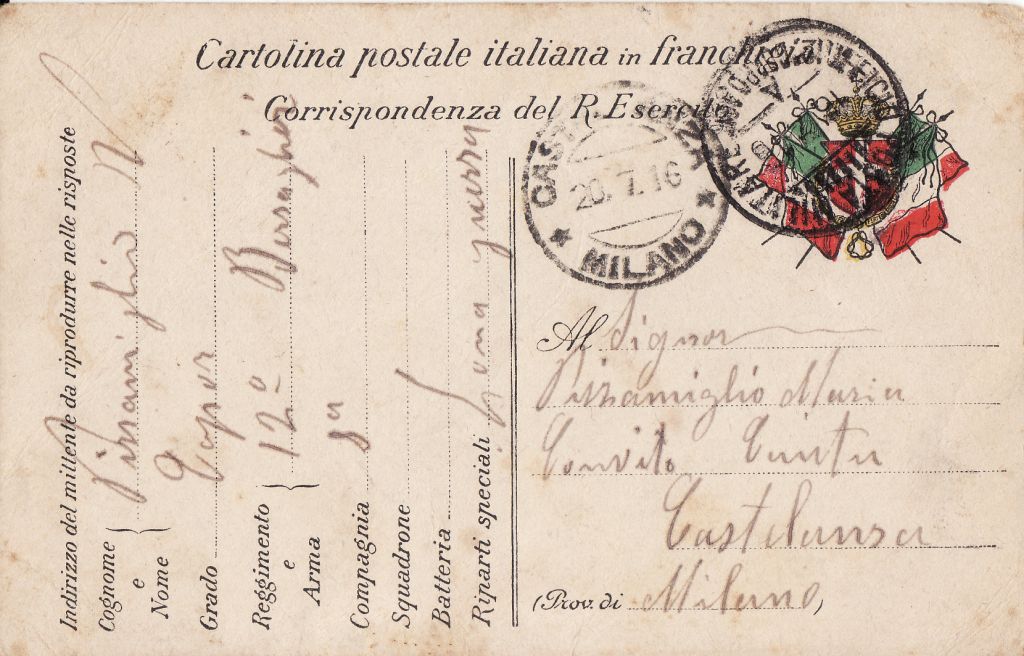 Cartolina postale italiana in franchigia
Corrispondenza del R. Esercito
CASTELLANZA
20.7.16
* MILANO *
Indirizzo del mittente da riprodurre nelle risposte
Cognome e Nome { Pizzamiglio
Grado
Reggimento e Arma { 12º Bersaglieri
Compagnia 8ª
Squadrone
Batteria
Riparti speciali Zona guerra
Al Signor
Pizzamiglio Maria
Convito
Castelanza
(Prov. di Milano)